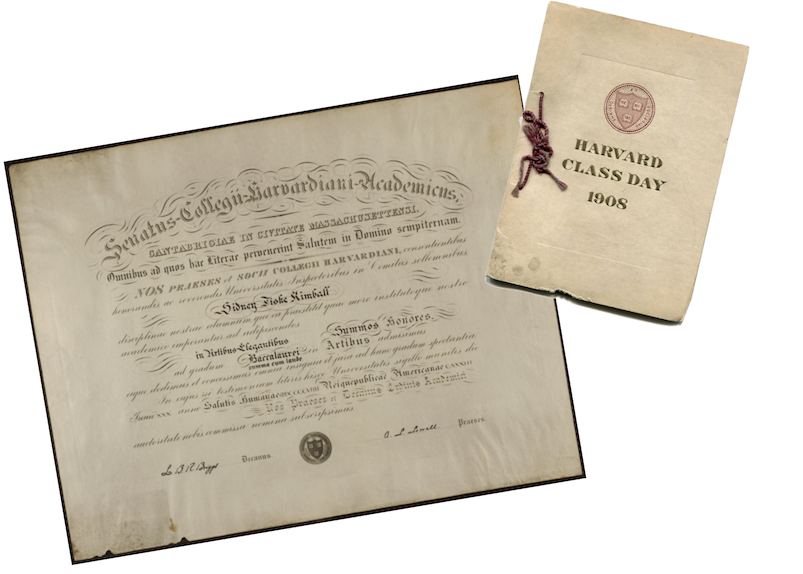 Senatus-Collegii-Harvardiani-Academicus,
CANTABRIGIAE IN CIVITATE MASSACHUSETTENSI,
Omnibus ad quos hae Literae pervenerint Salutem in Domino sempiternam.
NOS PRAESES et SOCII COLLEGII HARVARDIANI, consentientibus
honorandis ac reverendis Universitatis Inspectoribus in Comitiis sollemnibus,
Sidney Fiske Kimball
disciplinae nostrae alumnum, qui ea praestitit quae more institutoque nostro
academico imperantur ad adipiscendos
in Artibus Elegantibus Summos Honores,
ad gradum Baccalaurei in Artibus admisimus
summa cum laude
eique dedimus et concessimus omnia insignia et jura ad hunc gradum spectantia.
In cujus rei testimonium literis hisce Universitatis sigillo munitis die
Junii xxx anno Salutis Humanae Reique publicae Americanae CXXXIII
Nos Praeses et Decanus Ordinis Academici
auctoritate nobis commissa nomina subscripsimus
Decanus.
A. L. Lowell. Praeses.
HARVARD
CLASS DAY
1908